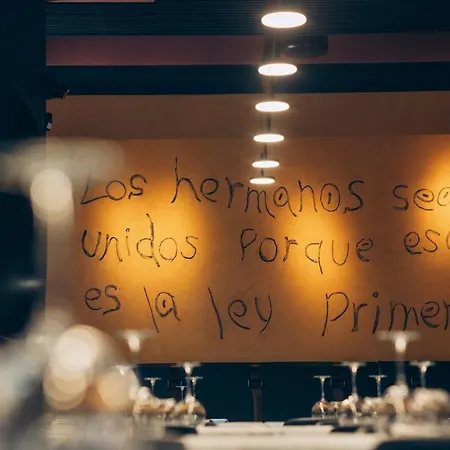 Los hermanos sea
unidos Porque esa
es la ley Primer